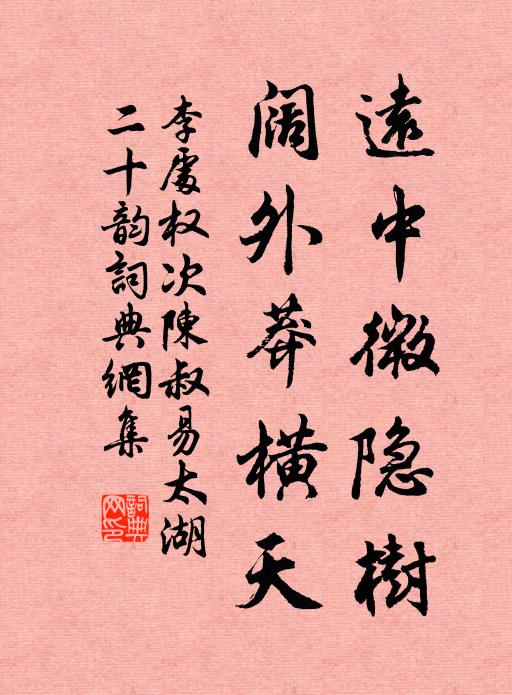 遠中微隐樹
阔外莽橫天
李處权次陳叔易太湖
二十韵詞典網集
詞典
网印